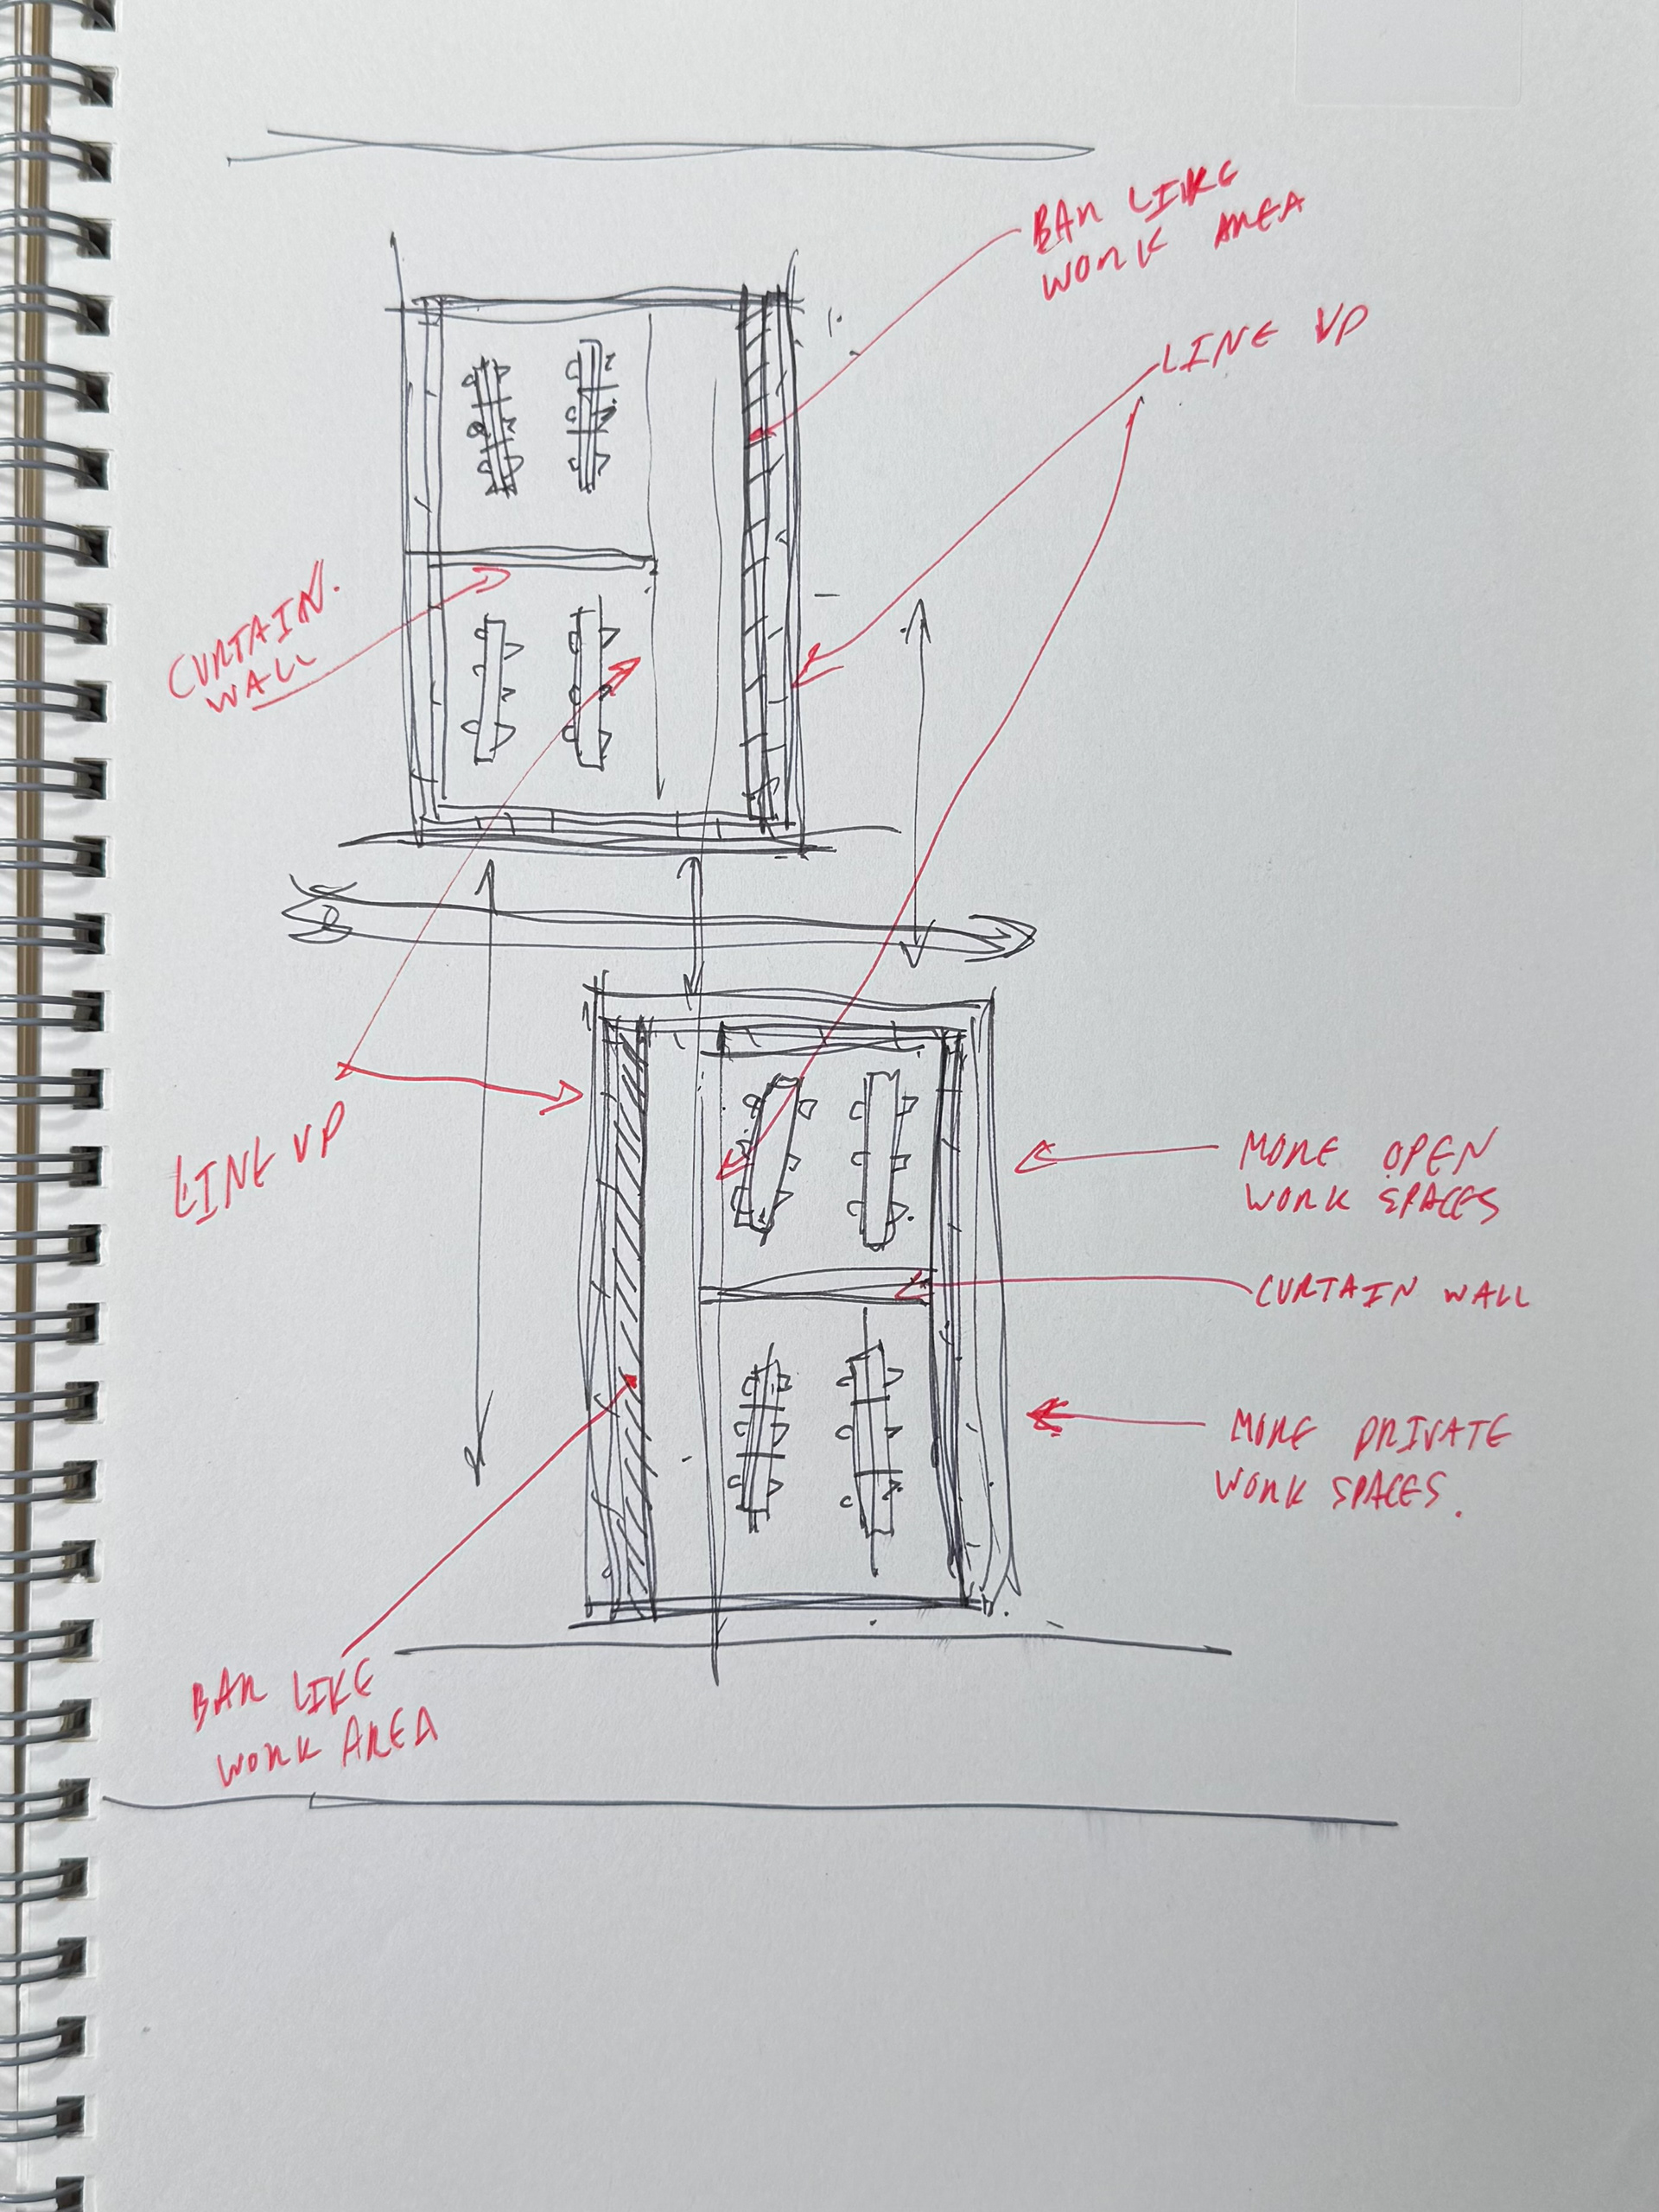 BAR LIKE
WORK AREA
LINE UP
CURTAIN.
WALL
LINE UP
MORE OPEN
WORK SPACES
CURTAIN WALL
MORE PRIVATE
WORK SPACES.
BAR LIKE
WORK AREA